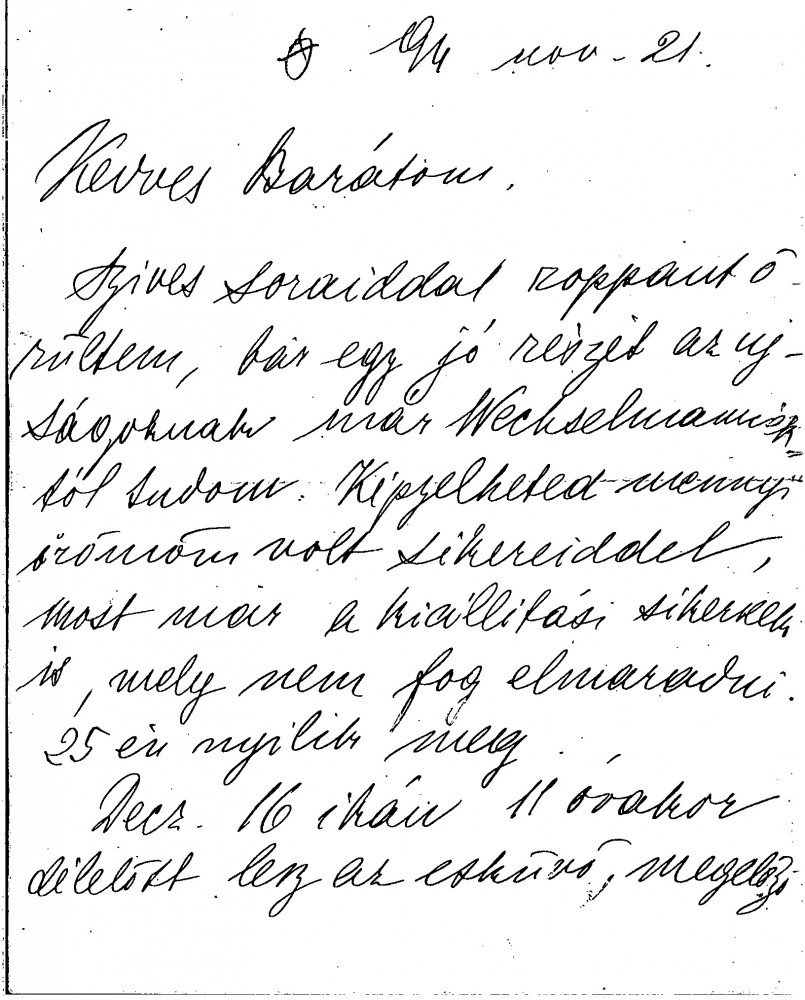 94 nov - 21.
Kedves Barátom,
Szives soraiddal roppant ö-
rültem, bár egy jó részét az uj-
ságoknak már Wechselmannék-
tól tudom. Képzelheted mennyi
örömöm volt sikereiddel,
most már a kiállitási sikernek
is, mely nem fog elmaradni.
25 én nyilik meg.
Decz. 16 ikán 11 órakor
délelőtt lesz az esküvő, megelőző